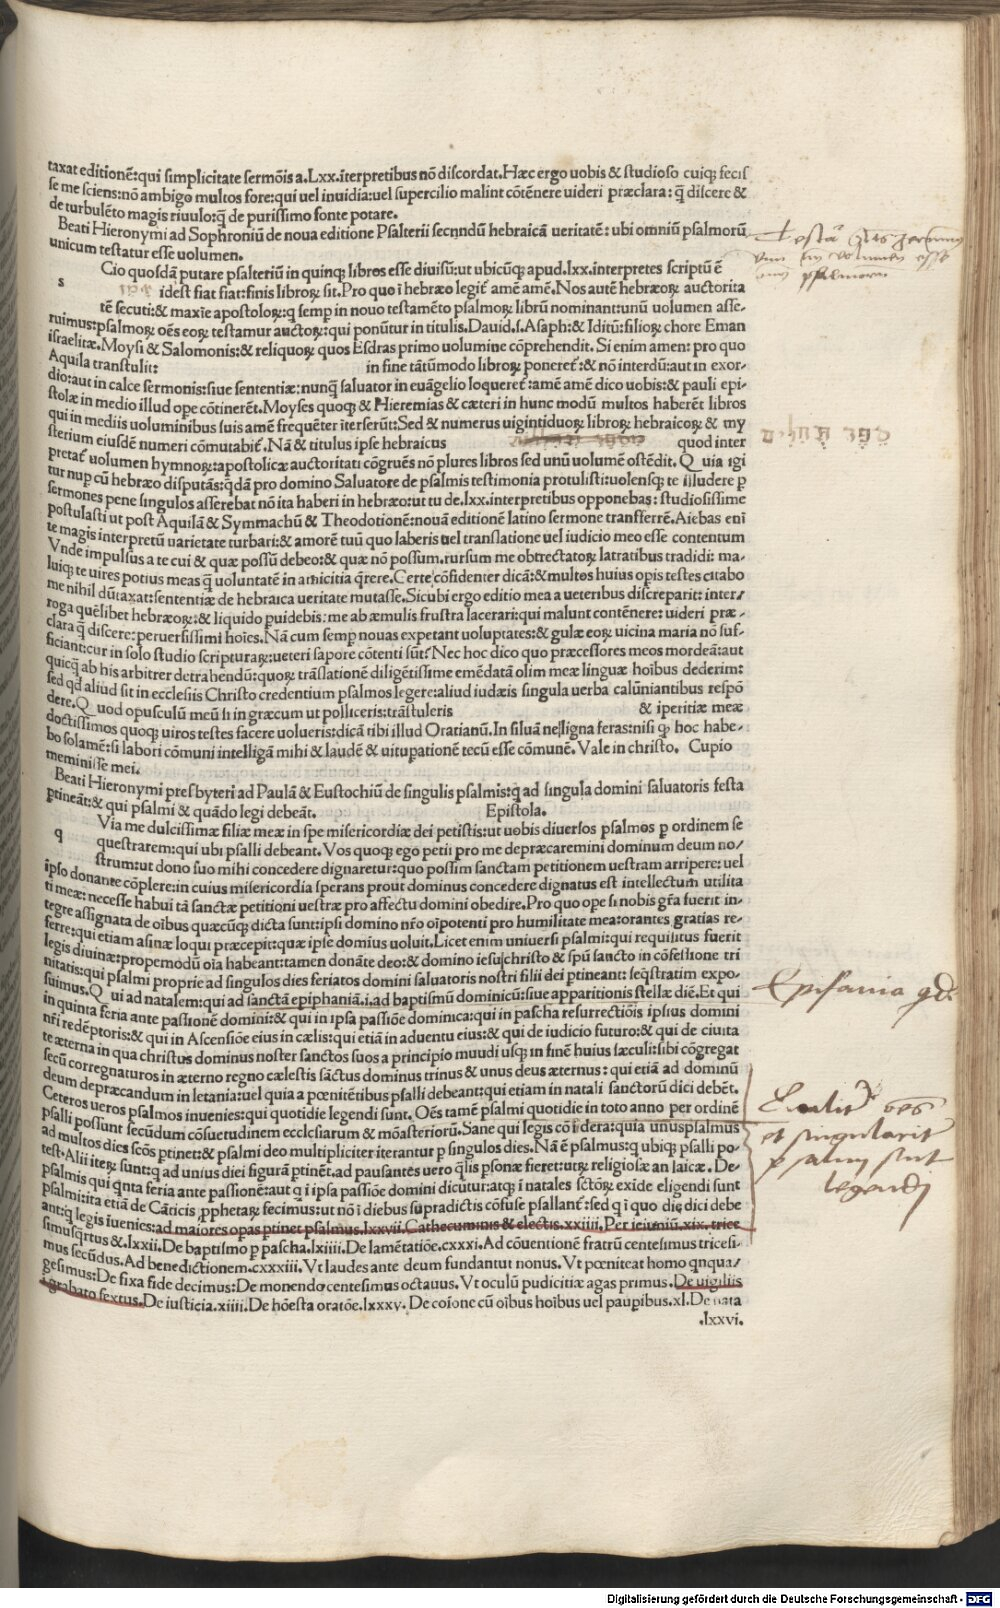 taxat editionē:qui simplicitate sermōis a.Lxx.īterpretibus nō discordat.Hæc ergo uobis & studioso cuiqꝫ fecis
se me sciens:nō ambigo multos fore:qui uel inuidia:uel supercilio malint cōtēnere uideri præclara: q̄ discere &
de turbulēto magis riuulo:q̄ de purissimo fonte potare.
Beati Hieronymi ad Sophroniū de noua editione Psalterii secundū hebraicā ueritatē: ubi omniū psalmorū
unicum testatur esse uolumen.
s Cio quosdā putare psalteriū in quinqꝫ libros esse diuisū:ut ubicūqꝫ apud.lxx.interpretes scriptū ē
idest fiat fiat:finis libroꝝ sit.Pro quo ī hebræo legit᷑ amē amē.Nos autē hebræoꝝ auctorita
tē secuti:& maxīe apostoloꝝ:q semp in nouo testamēto psalmoꝝ librū nominant:unū uolumen asse-
ruimus:psalmoꝝ oēs eoꝝ testamur auctoꝝ:qui ponūtur in titulis.Dauid.s.Asaph:& Iditū:filioꝝ chore Eman
israelitæ.Moysi & Salomonis:& reliquoꝝ quos Esdras primo uolumine cōprehendit. Si enim amen: pro quo
Aquila transtulit: in fine tātūmodo libroꝝ poneret᷑:& nō interdū:aut in exor-
dio:aut in calce sermonis:siue sententiæ:nunq̄ saluator in euāgelio loqueret᷑:amē amē dico uobis:& pauli epi-
stolæ in medio illud ope cōtinerēt.Moyses quoqꝫ & Hieremias & cæteri in hunc modū multos haberēt libros
qui in mediis uoluminibus suis amē frequēter īterserūt:Sed & numerus uigintiduoꝝ libroꝝ hebraicoꝝ & my
sterium eiusdē numeri cōmutabit᷑.Nā & titulus ipse hebraicus quod inter
pretat᷑ uolumen hymnoꝝ:apostolicæ auctoritati cōgruēs nō plures libros sed unū uolumē ostēdit.Quia igi
tur nup cū hebræo disputās:q̄dā pro domino Saluatore de psalmis testimonia protulisti:uolensqꝫ te illudere p
sermones pene singulos asserebat nō ita haberi in hebræo:ut tu de.lxx.interpretibus opponebas: studiosissime
postulasti ut post Aquilā & Symmachū & Theodotionē:nouā editionē latino sermone transferrē.Aiebas enī
te magis interpretū uarietate turbari:& amorē tuū quo laberis uel translatione uel iudicio meo esse contentum
Vnde impulsus a te cui & quæ possū debeo:& quæ nō possum.rursum me obtrectatoꝝ latratibus tradidi: ma-
luiqꝫ te uires potius meas q̄ uoluntatē in amicitia q̄rere.Certe cōfidenter dicā:& multos huius opis testes citabo
me nihil dūtaxat:sententiæ de hebraica ueritate mutasse.Sicubi ergo editio mea a ueteribus discreparit: inter/
roga quēlibet hebræoꝝ:& liquido puidebis: me ab æmulis frustra lacerari:qui malunt contēnere: uideri præ-
clara q̄ discere:peruersissimi hoīes.Nā cum semp nouas expetant uoluptates:& gulæ eoꝝ uicina maria nō suf-
ficiant:cur in solo studio scripturaꝝ:ueteri sapore cōtenti sūt?Nec hoc dico quo præcessores meos mordeā:aut
quicq̄ ab his arbitrer detrahendū:quoꝝ trāslationē diligētissime emēdatā olim meæ linguæ hoībus dederim:
sed qd aliud sit in ecclesiis Christo credentium psalmos legere:aliud iudæis singula uerba calūniantibus respō
dere.Quod opusculū meū si in græcum ut polliceris:trāstuleris & iperitiæ meæ
doctissimos quoqꝫ uiros testes facere uolueris:dicā tibi illud Oratianū.In siluā ne ligna feras:nisi qꝫ hoc habe-
bo solamē:si labori cōmuni intelligā mihi & laudē & uitupationē tecū esse cōmunē. Vale in christo. Cupio
meminisse mei.
Beati Hieronymi presbyteri ad Paulā & Eustochiū de singulis psalmis:q̄ ad singula domini saluatoris festa
ptineāt:& qui psalmi & quādo legi debeāt. Epistola.
q Via me dulcissimæ filiæ meæ in spe misericordiæ dei petistis:ut uobis diuersos psalmos p ordinem se
questrarem:qui ubi psalli debeant. Vos quoqꝫ ego petii pro me depræcaremini dominum deum no/
strum:ut dono suo mihi concedere dignaretur:quo possim sanctam petitionem uestram arripere: uel
īpso donante cōplere:in cuius misericordia sperans prout dominus concedere dignatus est intellectum utilita
ti meæ: necesse habui tā sanctæ petitioni uestræ pro affectu domini obedire.Pro quo ope si nobis gr̄a fuerit in-
tegre assignata de oībus quæcūqꝫ dicta sunt:ipsi domino nr̄o oīpotenti pro humilitate mea:orantes gratias re-
ferre:qui etiam asinæ loqui præcepit:quæ ipse domius uoluit.Licet enim uniuersi psalmi:qui requisitus fuerit
legis diuinæ:propemodū oīa habeant:tamen donāte deo:& domino iesuchristo & spū sancto in cōfessione tri
nitatis:qui psalmi proprie ad singulos dies feriatos domini saluatoris nostri filii dei ptineant: seq̄stratim expo-
suimus.Qui ad natalem:qui ad sanctā epiphaniā.i.ad baptismū dominicū:siue apparitionis stellæ diē.Et qui
in quinta feria ante passionē domini:& qui in ipsa passiōe dominica:qui in pascha resurrectiōis ipsius domini
nr̄i redēptoris:& qui in Ascensiōe eius in cælis:qui etiā in aduentu eius:& qui de iudicio futuro:& qui de ciuita
te æterna in qua christus dominus noster sanctos suos a principio muudi usqꝫ in finē huius sæculi:sibi cōgregat
secū corregnaturos in æterno regno cælestis sāctus dominus trinus & unus deus æternus: qui etiā ad dominū
deum depræcandum in letania:uel quia a pœnitētibus psalli debeant:qui etiam in natali sanctorū dici debēt.
Ceteros ueros psalmos inuenies:qui quotidie legendi sunt. Oēs tamē psalmi quotidie in toto anno per ordinē
psalli possunt secūdum cōsuetudinem ecclesiarum & mōasteriorū.Sane qui legis cōsidera:quia unuspsalmus
ad multos dies scōs ptinet:& psalmi deo multipliciter iterantur p singulos dies.Nā ē psalmus:q ubiqꝫ psalli po-
test.Alii iteꝝ sunt:q ad unius diei figurā ptinēt.ad pausantes uero q̄lis psonæ fieret:utꝝ religiosæ an laicæ. De-
psalmis qui qnta feria ante passionē:aut q ī ipsa passiōe domini dicūtur:atqꝫ ī natales sctōꝝ exide eligendi sunt
psalmi:ita etiā de Cāticis ꝓphetaꝝ fecimus:ut nō ī diebus supradictis cōfuse psallant᷑:sed q ī quo die dici debe
ant:q legis iuenies:ad maiores opas ptinet psalmus.lxxvii.Cathecuminis & electis.xxiiii. Per ieiuniū.xix.trice
simusq̄rtus &.lxxii.De baptismo p pascha.lxiiii.De lamētatiōe.cxxxi.Ad cōuentionē fratrū centesimus tricesi-
mus secūdus.Ad benedictionem.cxxxiii.Vt laudes ante deum fundantut nonus. Vt pœniteat homo qnqua/
gesimus:De fixa fide decimus:De monendo centesimus octauus. Vt oculū pudicitiæ agas primus. De uigiliis
ī grabato sextus.De iusticia.xiiii.De hōesta oratōe.lxxxv. De cōsone cū oībus hoībus uel paupibus.xl.De nata
.lxxvi.
ספר תהלים
Epifania qd
et singularit᷑
psalmi sint
legendi
Digitalisierung gefördert durch die Deutsche Forschungsgemeinschaft - DFG